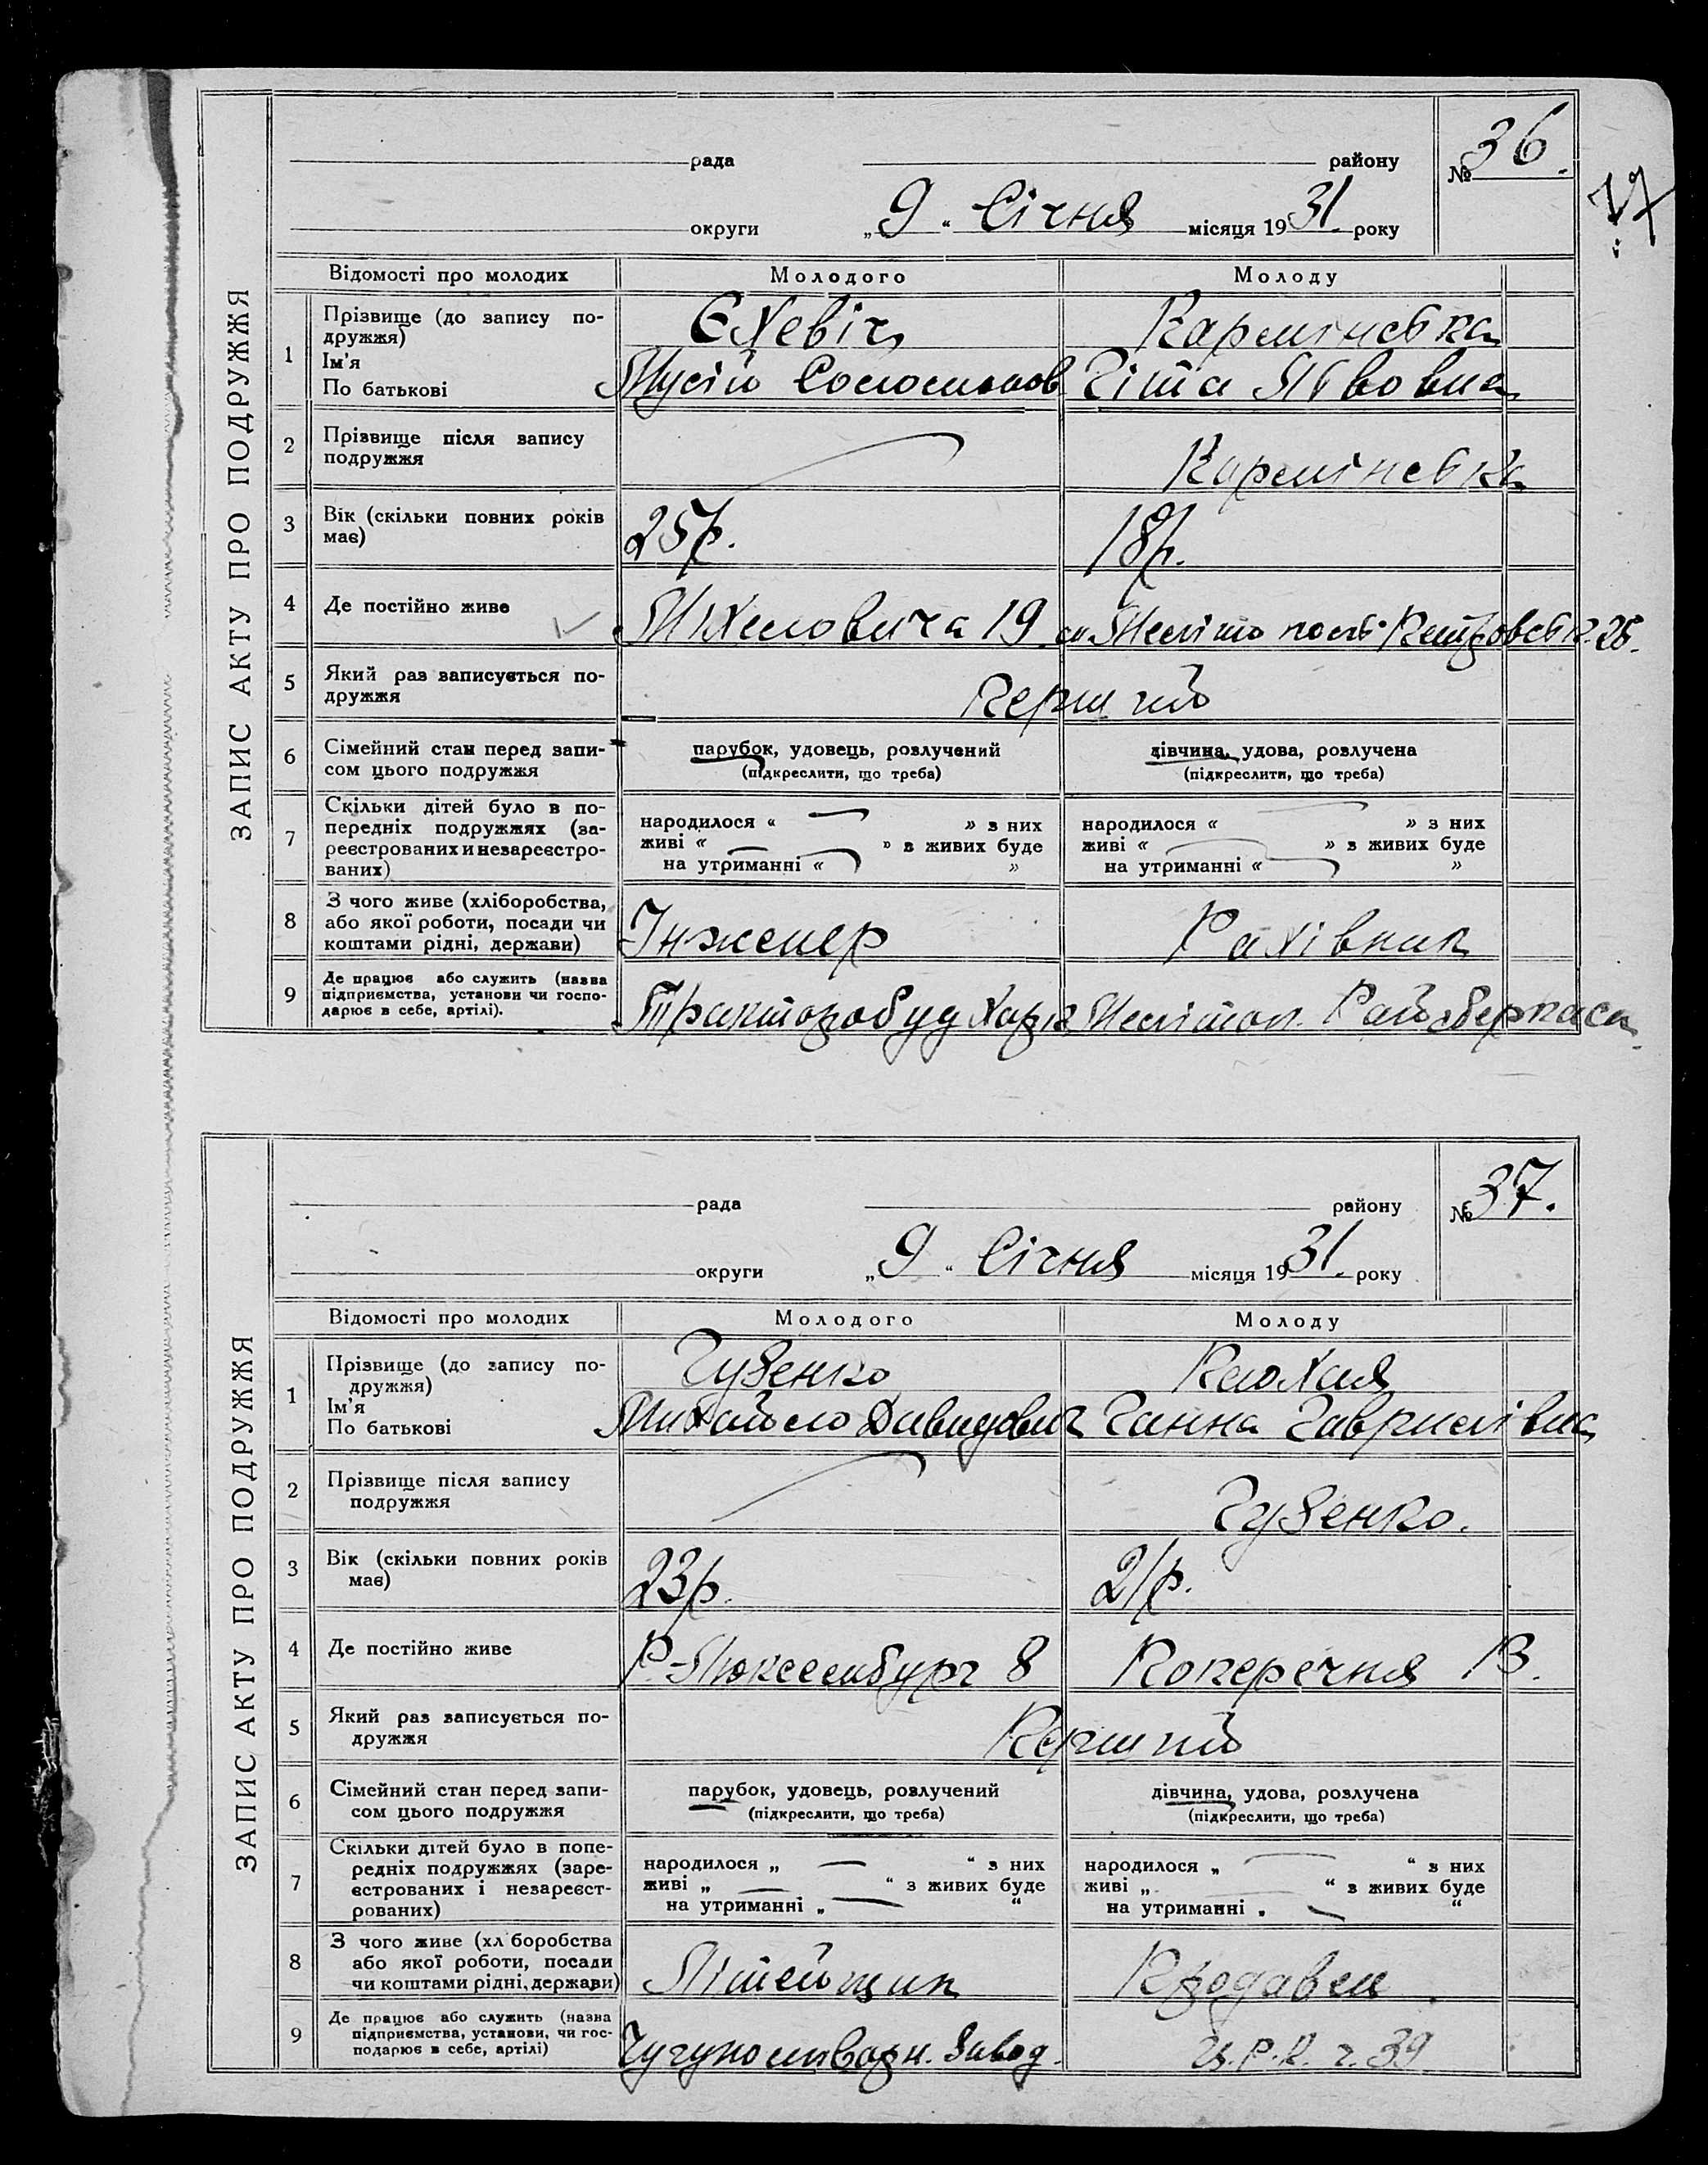 ЗАПИС АКТУ ПРО ПОДРУЖЖЯ
рада району № 36.
17
округи „9“ Січня місяця 1931. року
Відомості про молодих Молодого Молоду
1 Прізвище (до запису по-
дружжя)
Ім'я
По батькові
Єхевіч
Мусій Соломонов
Кармінська
Гіта Львовна
2 Прізвище після запису
подружжя
Кармінська
3 Вік (скільки повних років
має)
25р. 18р.
4 Де постійно живе
Міхеловича 19 Петровськ. 25.
5 Який раз записується по-
дружжя
Перший
6 Сімейний стан перед запи-
сом цього подружжя
парубок, удовець, розлучений
(підкреслити, що треба)
дівчина, удова, розлучена
(підкреслити, що треба)
7 Скільки дітей було в по-
передніх подружжях (за-
реєстрованих и незареєстро-
ваних)
народилося « » з них
живі « » з живих буде
на утриманні « »
народилося « » з них
живі « » з живих буде
на утриманні « »
8 З чого живе (хліборобства,
або якої роботи, посади чи
коштами рідні, держави)
Інженер Рахівник
9 Де працює або служить (назва
підприємства, установи чи госпо-
дарює в себе, артілі).
Тракторобуд Харк Мелітоп. Райсберкаса
ЗАПИС АКТУ ПРО ПОДРУЖЖЯ
рада району № 37.
округи „9“ Січня місяця 1931. року
Відомості про молодих Молодого Молоду
1 Прізвище (до запису по-
дружжя)
Ім'я
По батькові
Гузенко
Михайло Давидович
Клохля
Ганна Гаврилівна
2 Прізвище після запису
подружжя
Гузенко.
3 Вік (скільки повних років
має)
23р. 21р.
4 Де постійно живе
Р. Люксембург 8 Поперечня 13.
5 Який раз записується по-
дружжя
Перший
6 Сімейний стан перед запи-
сом цього подружжя
парубок, удовець, розлучений
(підкреслити, що треба)
дівчина, удова, розлучена
(підкреслити, що треба)
7 Скільки дітей було в попе-
редніх подружжях (заре-
єстрованих і незареєст-
рованих)
народилося „ “ з них
живі „ “ з живих буде
на утриманні „ “
народилося „ “ з них
живі „ “ з живих буде
на утриманні „ “
8 З чого живе (хл боробства
або якої роботи, посади
чи коштами рідні, держави)
Літейщик Продавец
9 Де працює або служить (назва
підприємства, установи, чи гос-
подарює в себе, артілі)
Чугуноливарн. Завод. Ц.Р.К. ч. 39